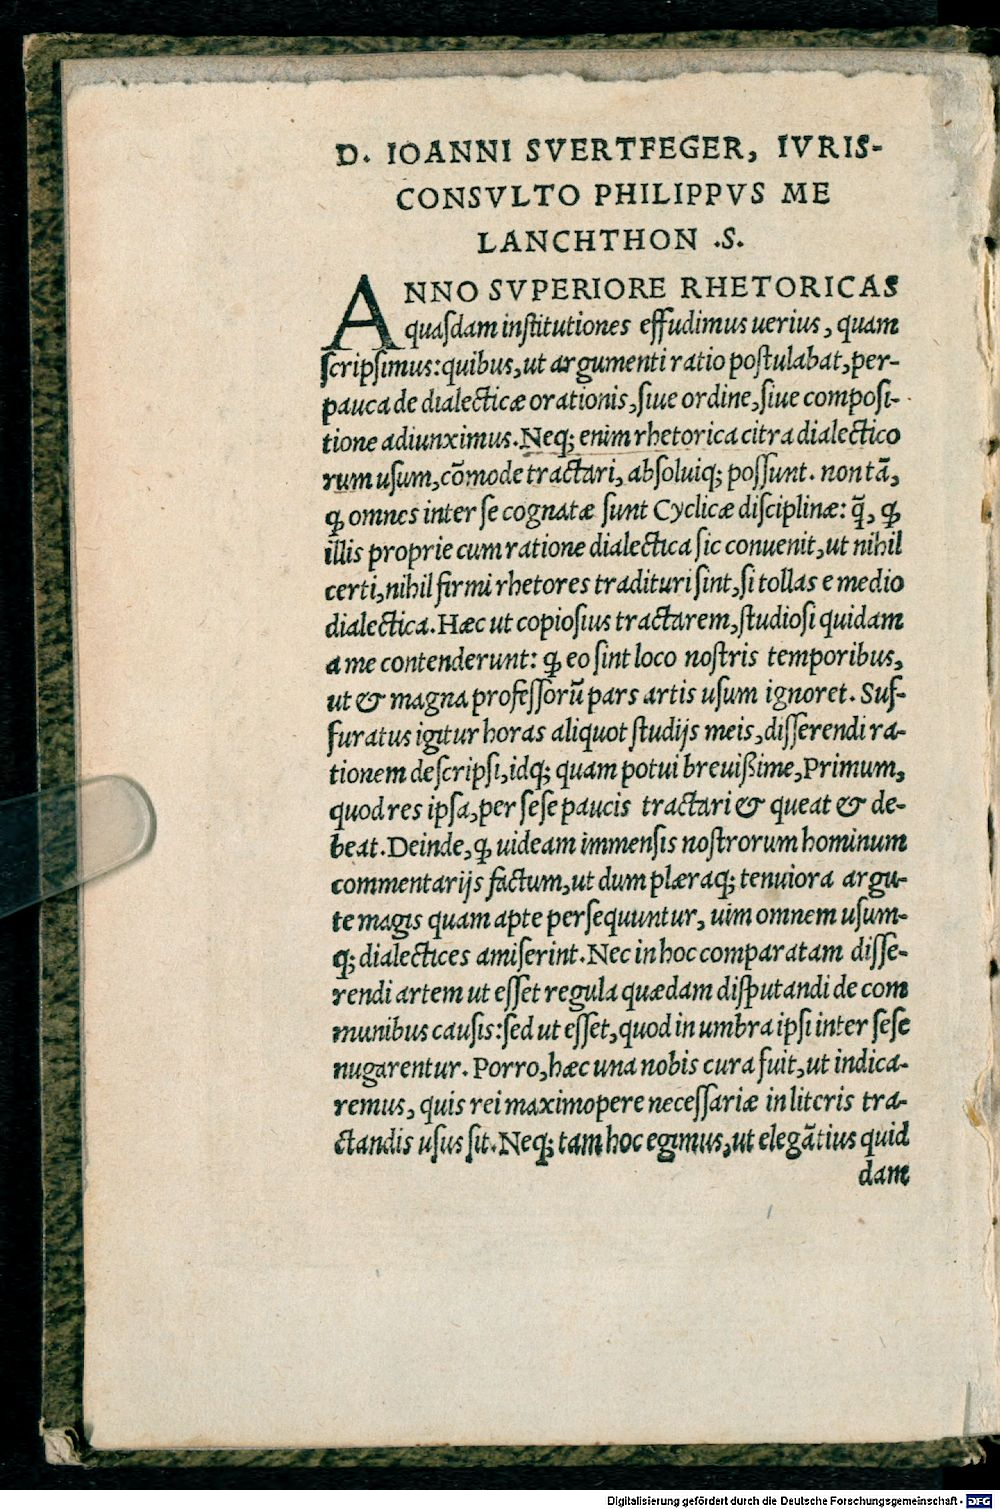 D. IOANNI SVERTFEGER, IVRIS-
CONSVLTO PHILIPPVS ME
LANCHTHON .S.
ANNO SVPERIORE RHETORICAS
quaſdam inſtitutiones effudimus uerius, quam
ſcripſimus: quibus, ut argumenti ratio poſtulabat, per-
pauca de dialecticæ orationis, ſiue ordine, ſiue compoſi-
tione adiunximus. Neq; enim rhetorica citra dialectico
rum uſum, cōmode tractari, abſoluiq; poſſunt. non tā,
ꝙ omnes inter ſe cognatæ ſunt Cyclicæ diſciplinæ: q̄, ꝙ
illis proprie cum ratione dialectica ſic conuenit, ut nihil
certi, nihil firmi rhetores tradituri ſint, ſi tollas e medio
dialectica. Hæc ut copioſius tractarem, ſtudioſi quidam
a me contenderunt: ꝙ eo ſint loco noſtris temporibus,
ut & magna profeſſorū pars artis uſum ignoret. Suf-
furatus igitur horas aliquot ſtudijs meis, diſſerendi ra-
tionem deſcripſi, idq; quam potui breuißime, Primum,
quod res ipſa, per ſeſe paucis tractari & queat & de-
beat. Deinde, ꝙ uideam immenſis noſtrorum hominum
commentarijs factum, ut dum plæraq; tenuiora argu-
te magis quam apte perſequuntur, uim omnem uſum-
q; dialectices amiſerint. Nec in hoc comparatam diſſe-
rendi artem ut eſſet regula quædam diſputandi de com
munibus cauſis: ſed ut eſſet, quod in umbra ipſi inter ſeſe
nugarentur. Porro, hæc una nobis cura fuit, ut indica-
remus, quis rei maximopere neceſſariæ in literis tra-
ctandis uſus ſit. Neq; tam hoc egimus, ut elegātius quid
dam
Digitalisierung gefördert durch die Deutsche Forschungsgemeinschaft - DFG